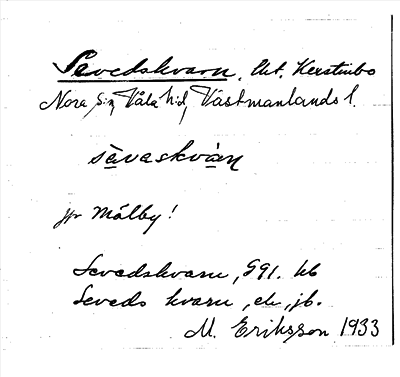 Sevedskvarn, Ut. Kerstinbo
Nora s:n, Våla h:d, Västmanlands l.
sèvaskvàn
jfr Målby!
Sevedskvarn, 591. kb
Seveds kvarn, ek, jb.
M. Eriksson 1933